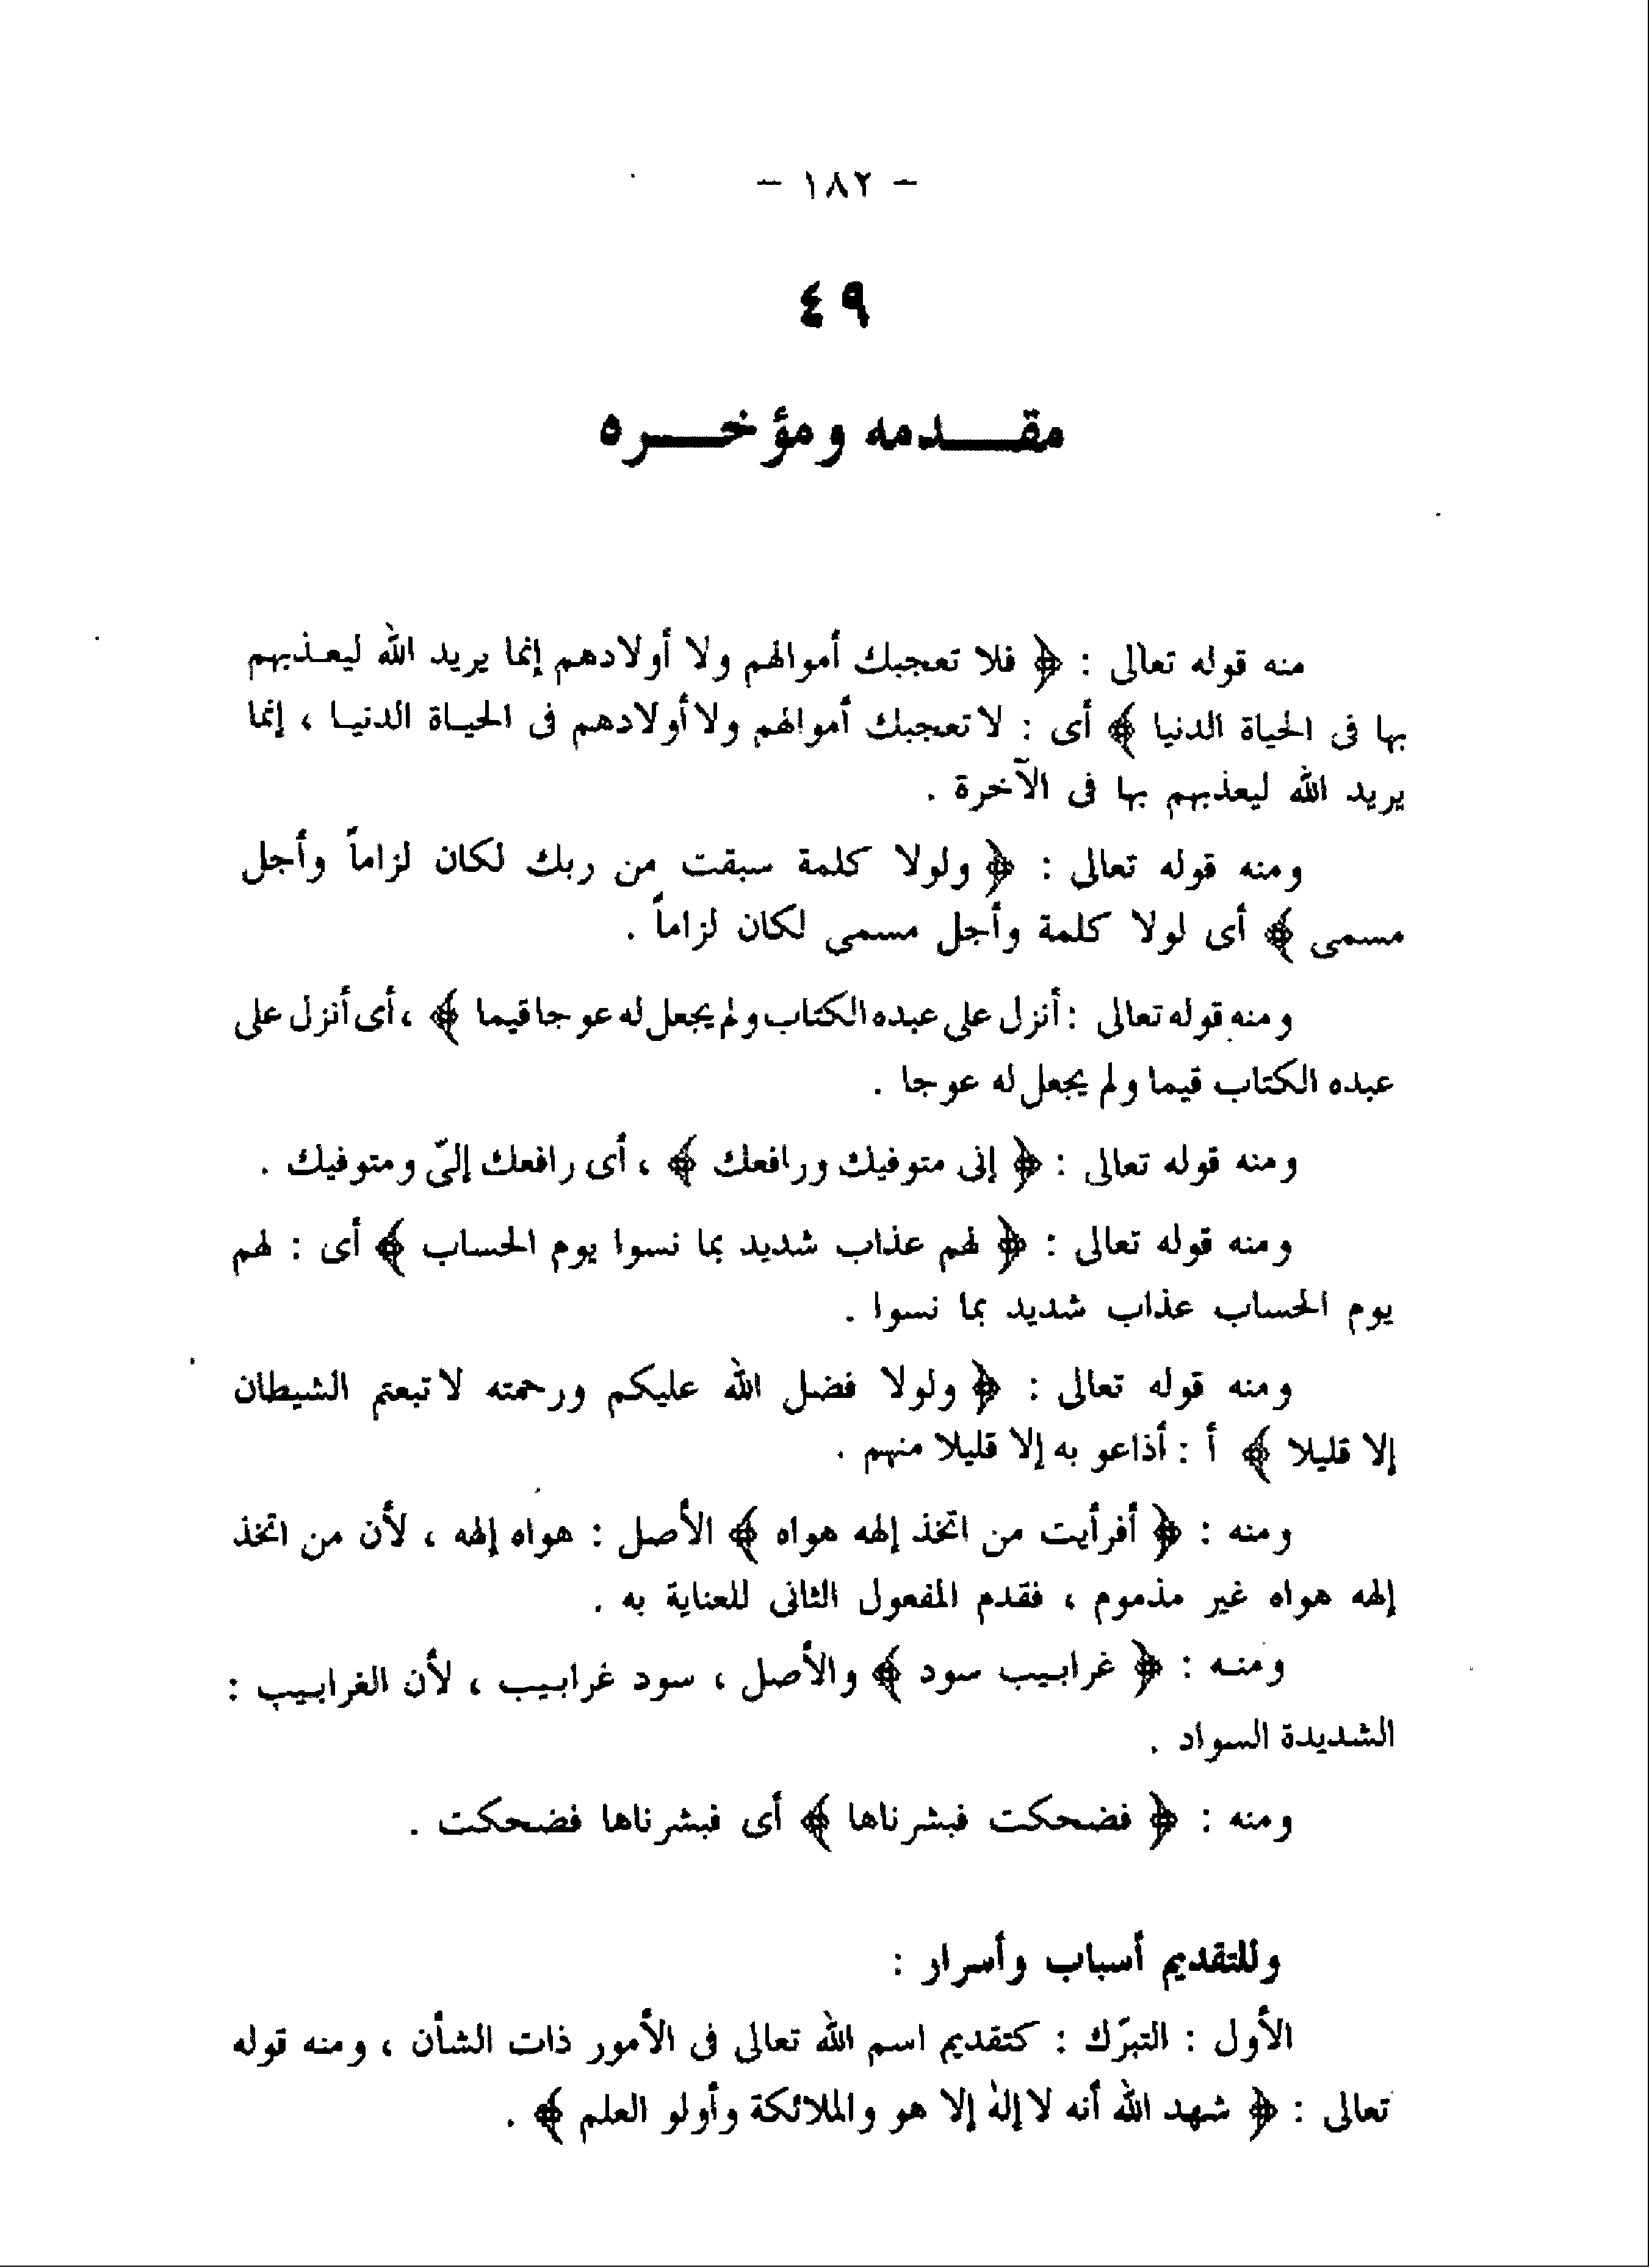 - ١٨٢ -
٤٩
مقدمه ومؤخره
منه قوله تعالى : ﴿ فلا تعجبك أموالهم ولا أولادهم إنما يريد الله ليعذبهم
بها فى الحياة الدنيا ﴾ أى : لا تعجبك أموالهم ولا أولادهم فى الحياة الدنيا ، إنما
يريد الله ليعذبهم بها فى الآخرة .
ومنه قوله تعالى : ﴿ ولولا كلمة سبقت من ربك لكان لزاماً وأجل
مسمى ﴾ أى لولا كلمة وأجل مسمى لكان لزاماً .
ومنه قوله تعالى : أنزل على عبده الكتاب ولم يجعل له عوجا قيما ﴾ ، أى أنزل على
عبده الكتاب قيما ولم يجعل له عوجا .
ومنه قوله تعالى : ﴿ إنى متوفيك ورافعك ﴾ ، أى رافعك إلىّ ومتوفيك .
ومنه قوله تعالى : ﴿ لهم عذاب شديد بما نسوا يوم الحساب ﴾ أى : لهم
يوم الحساب عذاب شديد بما نسوا .
ومنه قوله تعالى : ﴿ ولولا فضل الله عليكم ورحمته لاتبعتم الشيطان
إلا قليلا ﴾ أ : أذاعو به إلا قليلا منهم .
ومنه : ﴿ أفرأيت من اتخذ إلهه هواه ﴾ الأصل : هواه إلهه ، لأن من اتخذ
إلهه هواه غير مذموم ، فقدم المفعول الثانى للعناية به .
ومنه : ﴿ غرابيب سود ﴾ والأصل ، سود غرابيب ، لأن الغرابيب :
الشديدة السواد .
ومنه : ﴿ فضحكت فبشرناها ﴾ أى فبشرناها فضحكت .
وللتقديم أسباب وأسرار :
الأول : التبرّك : كتقديم اسم الله تعالى فى الأمور ذات الشأن ، ومنه قوله
تعالى : ﴿ شهد الله أنه لا إله إلا هو والملائكة وأولو العلم ﴾ .